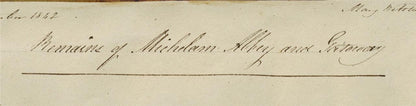 Nov 1842
Remains of Michelam Abbey and Gateway